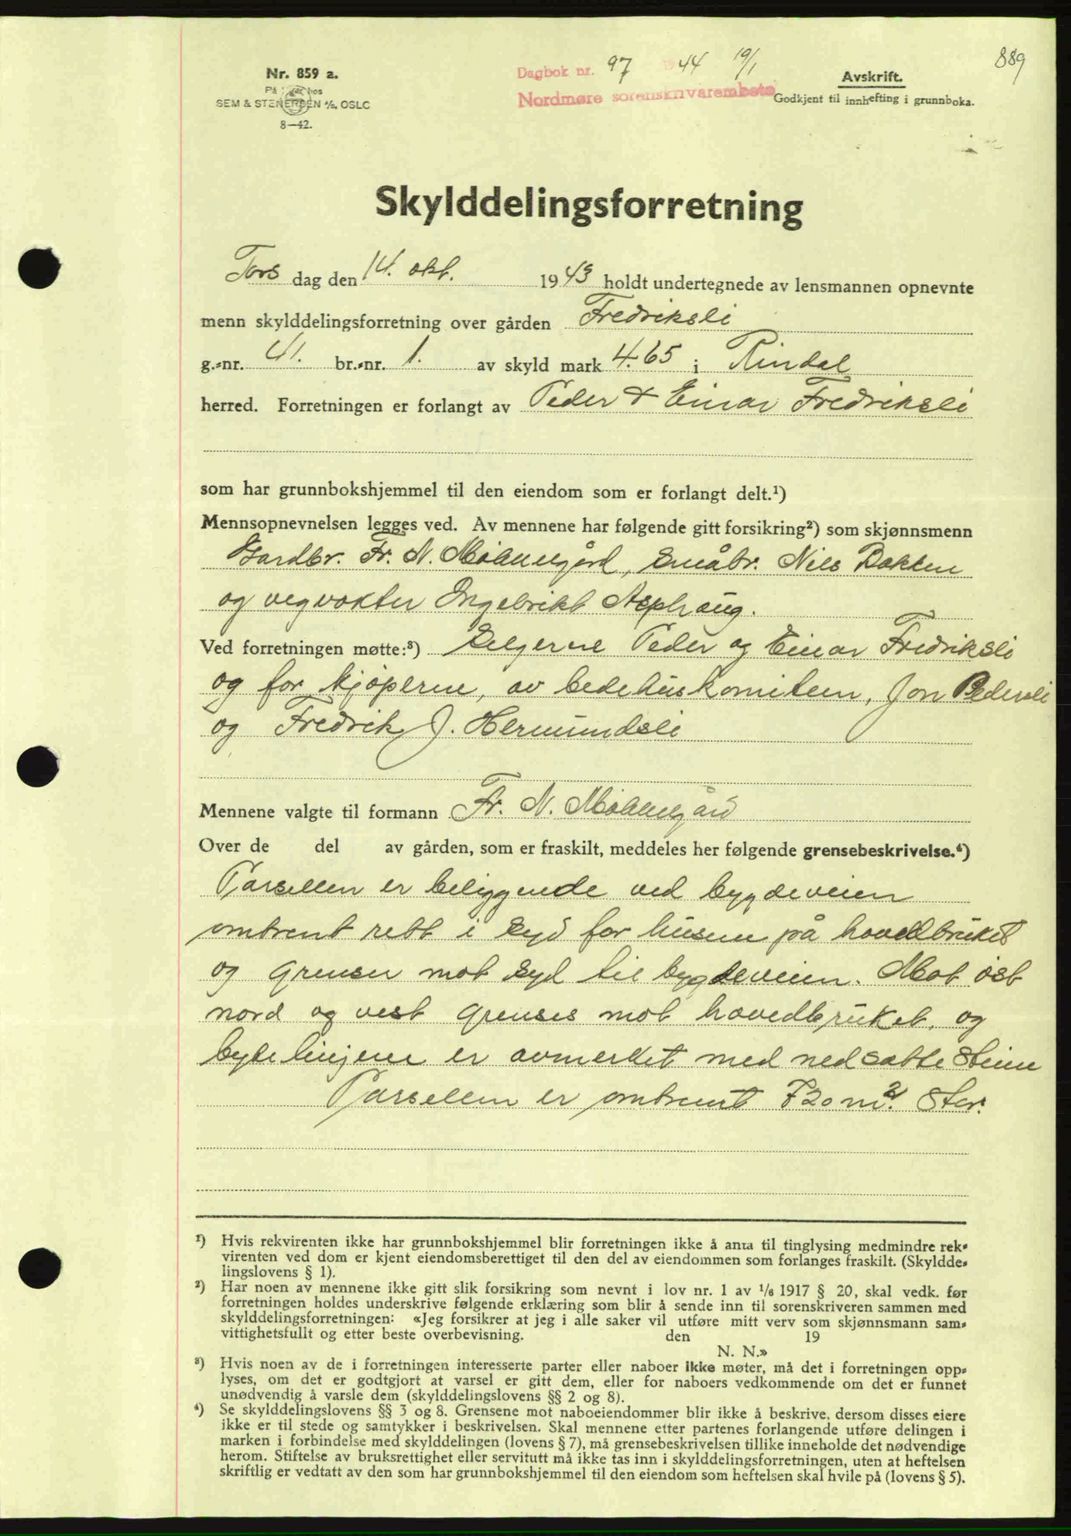 889
Nr. 859 a.
På lager hos
SEM & STENERSEN A/S, OSLO
8—42.
Dagbok nr. 97 1944 19/1
Nordmøre sorenskrivarembete
Avskrift.
Godkjent til innhefting i grunnboka.
Skylddelingsforretning
Tors dag den 14. okt. 1943 holdt undertegnede av lensmannen opnevnte
menn skylddelingsforretning over gården Fredriksli
g.-nr. 41. br.-nr. 1. av skyld mark 4.65 i Rindal
herred. Forretningen er forlangt av Peder & Einar Fredriksli
som har grunnbokshjemmel til den eiendom som er forlangt delt.¹)
Mennsopnevnelsen legges ved. Av mennene har følgende gitt forsikring²) som skjønnsmenn
Gardbr. Fr. N. Møkkelgård, Småbr. Nils Bakken
og vegvokter Ingebrikt Asphaug.
Ved forretningen møtte:³) Selgerne Peder og Einar Fredriksli
og for kjøperne, av bedehuskomiteen, Jon Pedersli
og Fredrik J. Hermundsli
Mennene valgte til formann Fr. N. Møkkelgård
Over de del av gården, som er fraskilt, meddeles her følgende grensebeskrivelse.⁴)
Parsellen er beliggende ved bygdeveien
omtrent rett i syd for husene på hovedbruket
og grenser mot syd til bygdeveien. Mot øst
nord og vest grenses mot hovedbruket, og
bytelinjene er avmerket med nedsatte steine
Parsellen er omtrent 720 m². Stor.
¹) Hvis rekvirenten ikke har grunnbokshjemmel blir forretningen ikke å anta til tinglysing medmindre rek-
virenten ved dom er kjent eiendomsberettiget til den del av eiendommen som forlanges fraskilt. (Skyldde-
lingslovens § 1).
²) Har noen av mennene ikke gitt slik forsikring som nevnt i lov nr. 1 av 1/6 1917 § 20, skal vedk. før
forretningen holdes underskrive følgende erklæring som blir å sende inn til sorenskriveren sammen med
skylddelingsforretningen: «Jeg forsikrer at jeg i alle saker vil utføre mitt verv som skjønnsmann sam-
vittighetsfullt og etter beste overbevisning. den 19
N. N.»
³) Hvis noen av de i forretningen interesserte parter eller naboer ikke møter, må det i forretningen opp-
lyses, om det er godtgjort at varsel er gitt dem, eller for naboers vedkommende om det er funnet
unødvendig å varsle dem (skylddelingslovens §§ 2 og 8).
⁴) Se skylddelingslovens §§ 3 og 8. Grensene mot naboeiendommer blir ikke å beskrive, dersom disses eiere
ikke er til stede og samtykker i beskrivelsen. Skal mennene etter partenes forlangende utføre delingen i
marken i forbindelse med skylddelingen (lovens § 7), må grensebeskrivelsen tillike inneholde det nødvendige
herom. Stiftelse av bruksrettighet eller servitutt må ikke tas inn i skylddelingsforretningen, uten at heftelsen
skriftlig er vedtatt av den som har grunnbokshjemmel til den eiendom som heftelsen skal hvile på (lovens § 5).